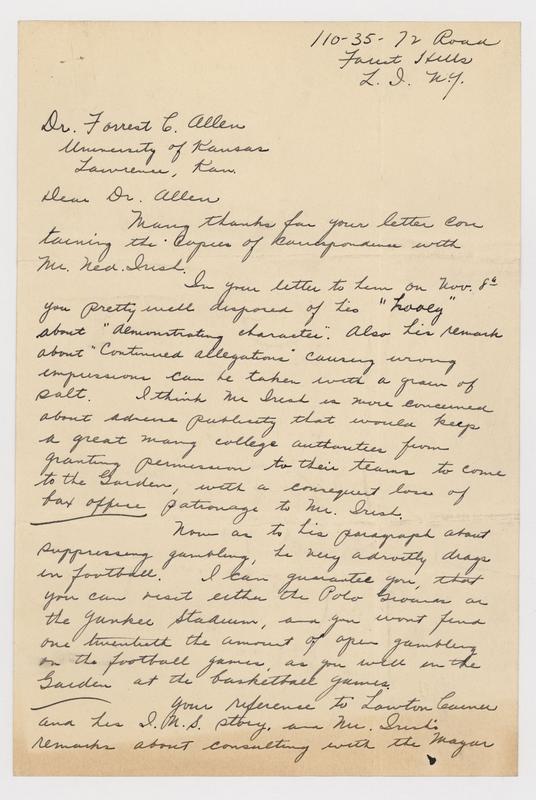 110-35-72 Road
Forest Hills
L. I. N.Y.
Dr. Forrest C. Allen
University of Kansas
Lawrence, Kan.
Dear Dr. Allen
Many thanks for your letter con
taining the copies of correspondence with
Mr. Ned. Irish.
In your letter to him on Nov. 8th
you pretty well disposed of his "hooey"
about "demonstrating character". Also his remark
about "Continued allegations" causing wrong
impressions can be taken with a grain of
salt. I think Mr Irish is more concerned
about adverse publicity that would keep
a great many college authorities from
granting permission to their teams to come
to the Garden, with a consequent loss of
box office patronage to Mr. Irish.
Now as to his paragraph about
suppressing gambling, he very adroitly drags
in football. I can guarantee you, that
you can visit either the Polo Grounds or
the Yankee Stadium, and you wont find
one twentieth the amount of open gambling
on the football games, as you will in the
Garden at the basketball games.
Your reference to Lawton Carver
and his I.N.S. story, and Mr. Irish's
remarks about consulting with the Mayor